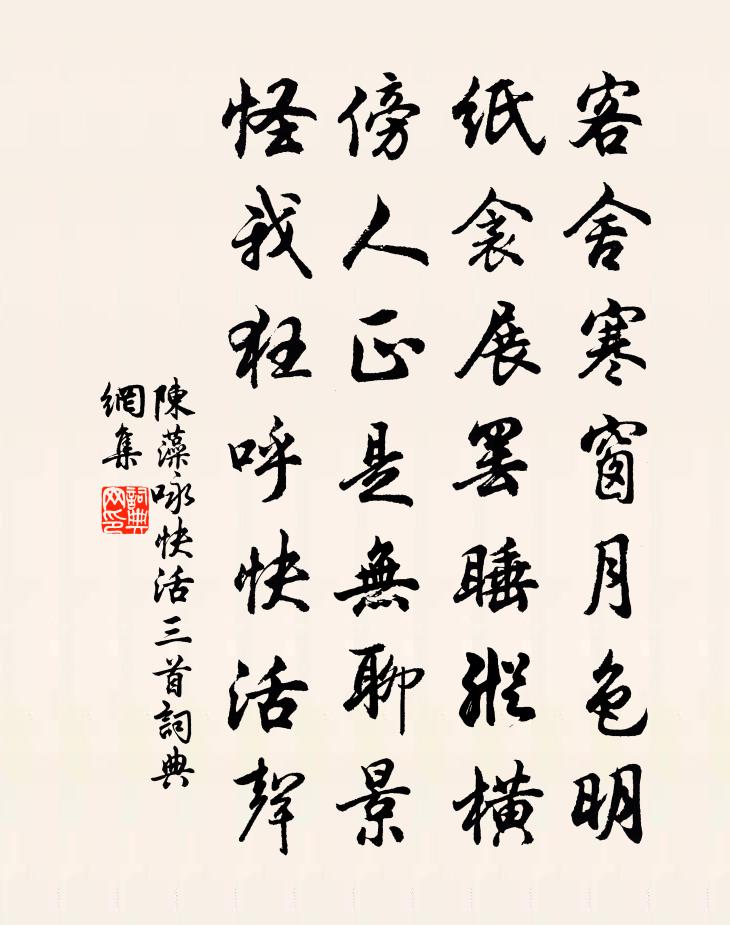 客舍寒窗月色明
紙衾展罷睡縱橫
傍人正是無聊景
怪我狂呼快活聲
陳藻咏快活三首詞典
網集
詞典
網印